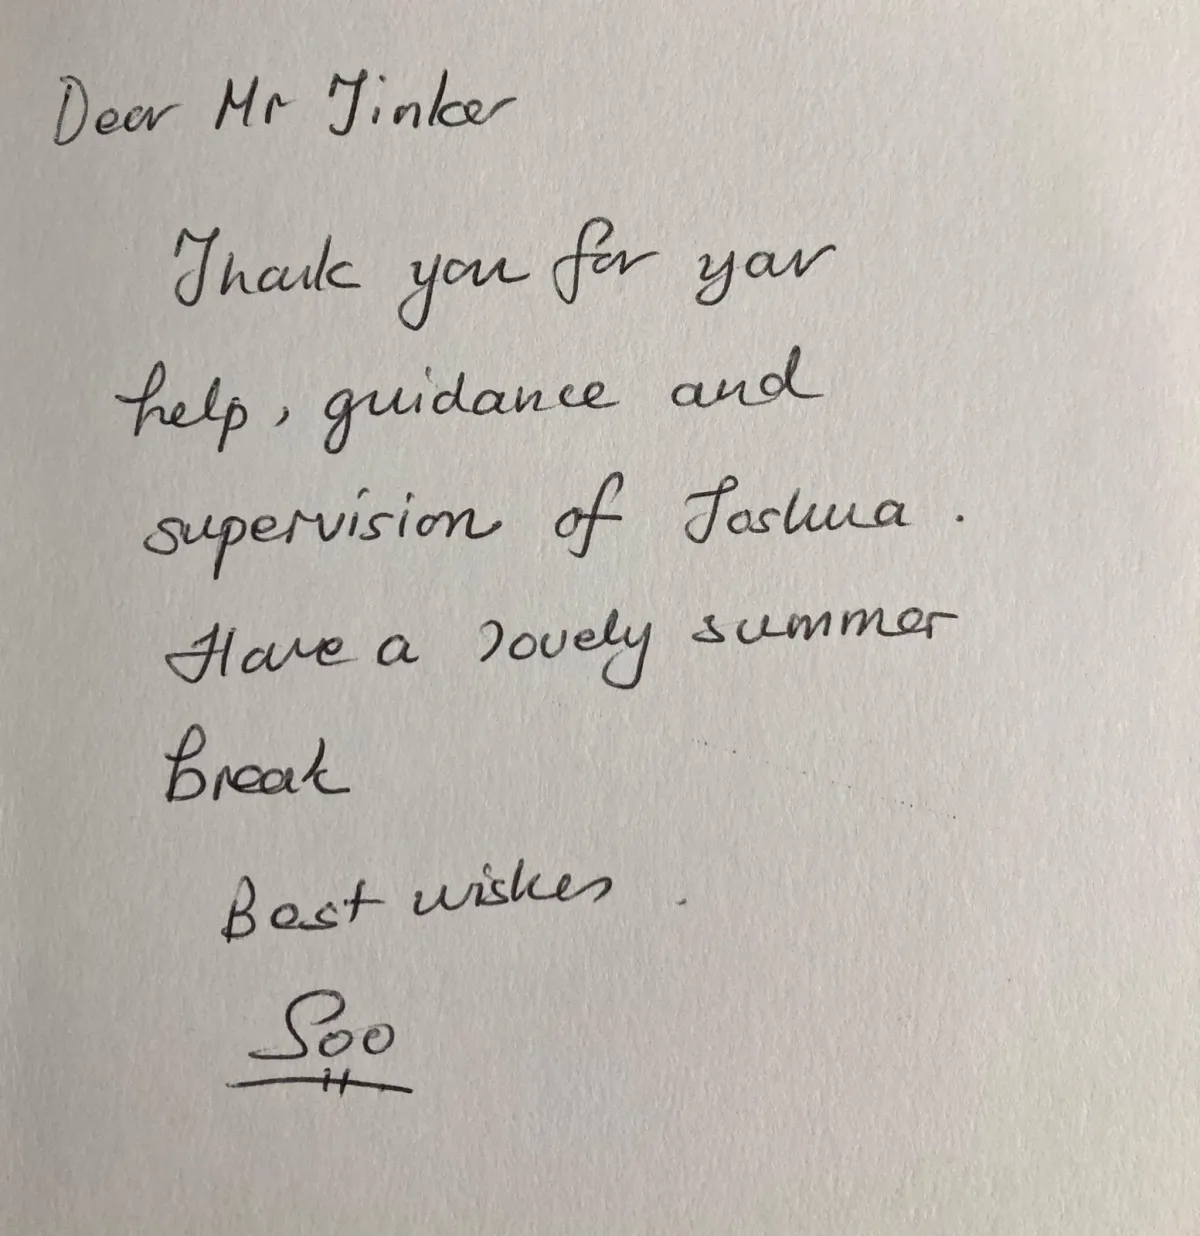 Dear Mr Tinker
Thank you for your
help, guidance and
supervision of Joshua .
Have a lovely summer
Break
Best wishes .
Soo